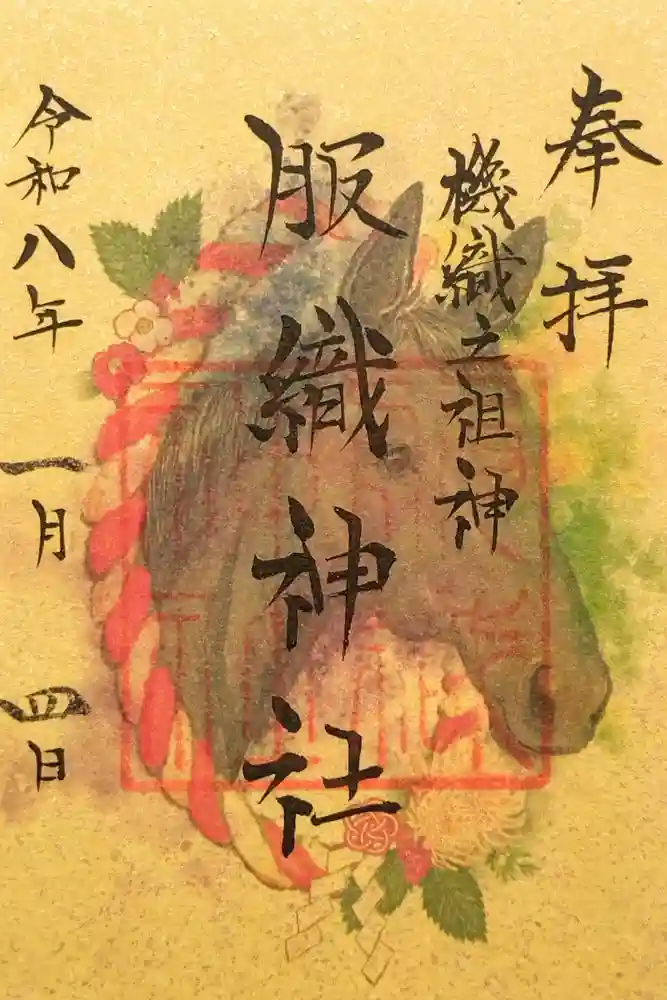 奉拝
機織之祖神
服織神社
令和八年一月四日